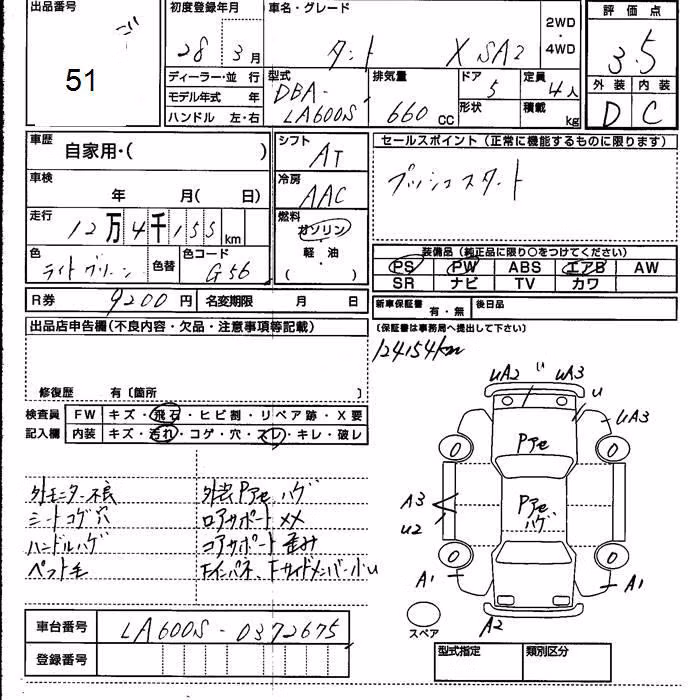 出品番号
51
初度登録年月
28年 3月
車名・グレード
タント X SA2
2WD
・
4WD
評価点
3.5
外装 内装
D C
ディーラー・並行
モデル年式 年
ハンドル 左・右
型式
DBA-
LA600S
排気量
660 cc
ドア
5
形状
定員
4人
積載
kg
車歴
自家用・( )
車検
年 月( 日)
走行
12万4千155 km
色
ライトグリーン
色替
色コード
G56
R券 9200円 名変期限 月 日
シフト
AT
冷房
AAC
燃料
ガソリン
・
軽油
・
( )
セールスポイント (正常に機能するものに限ります)
プッシュスタート
装備品 (純正品に限り○をつけてください)
PS PW ABS エアB AW
SR ナビ TV カワ
新車保証書 有・無 後日品
(保証書は事務局へ提出して下さい)
124154km
出品店申告欄(不良内容・欠品・注意事項等記載)
修復歴 有〔箇所 〕
検査員 FW キズ・飛石・ヒビ割・リペア跡・X要
記入欄 内装 キズ・汚れ・コゲ・穴・スレ・キレ・破レ
外モニター不良
シートコゲ穴
ハンドルハゲ
ペット毛
外装Pアセハゲ
ロアサポートXX
コアサポート歪み
Fインパネ、Fサイドメンバー小U
UA2 UA3
U
UA3
Pアセ
A3
U2
Pアセ
ハゲ
0 0
0 0
A1 A1
A2
スペア
車台番号 LA600S-0372675
登録番号
型式指定 類別区分